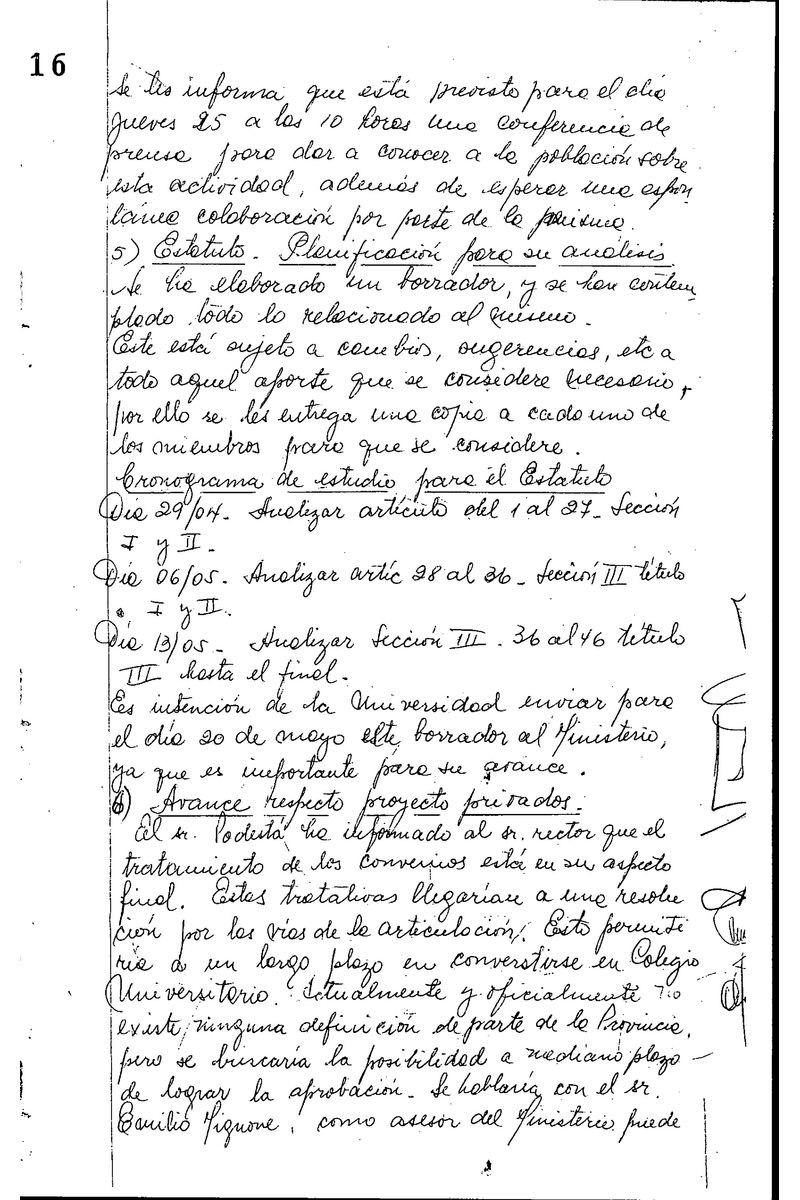 16
Se les informa que está previsto para el día
jueves 25 a las 10 horas una conferencia de
prensa para dar a conocer a la población sobre
esta actividad, además de esperar una espon
tánea colaboración por parte de la misma.
5) Estatuto. Planificación para su análisis.
Se ha elaborado un borrador, y se han contem
plado todo lo relacionado al mismo.
Este está sujeto a cambios, sugerencias, etc a
todo aquel aporte que se considere necesario,
por ello se les entrega una copia a cada uno de
los miembros para que se considere.
Cronograma de estudio para el Estatuto
Día 29/04. Analizar artículo del 1 al 27. Sección
I y II.
Día 06/05. Analizar artíc 28 al 36. Sección III título
I y II.
Día 13/05. Analizar Sección III. 36 al 46 título
III hasta el final.
Es intención de la Universidad enviar para
el día 20 de mayo este borrador al Ministerio,
ya que es importante para su avance.
6) Avance respecto proyecto privados.
El sr. Podestá ha informado al sr. rector que el
tratamiento de los convenios está en su aspecto
final. Estas tratativas llegarían a una resolu
ción por las vías de la articulación. Esto permiti
ría a un largo plazo en converstirse en Colegio
Universitario. Actualmente y oficialmente no
existe ninguna definición de parte de la Provincia,
pero se buscaría la posibilidad a mediano plazo
de lograr la aprobación. Se hablaría con el sr.
Emilio Mignone, como asesor del Ministerio puede